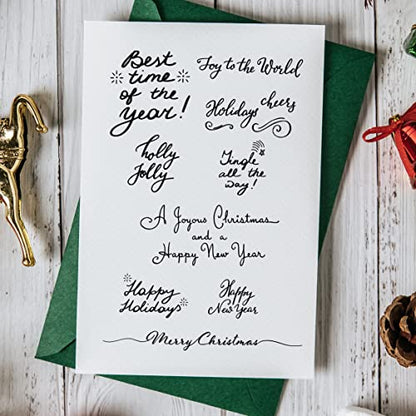 Best
time
of the
year!
Joy to the World
Holidays cheers
holly
jolly
Jingle
all the
way!
A Joyous Christmas
and a
Happy New Year
Happy
Holidays
Happy
New Year
Merry Christmas